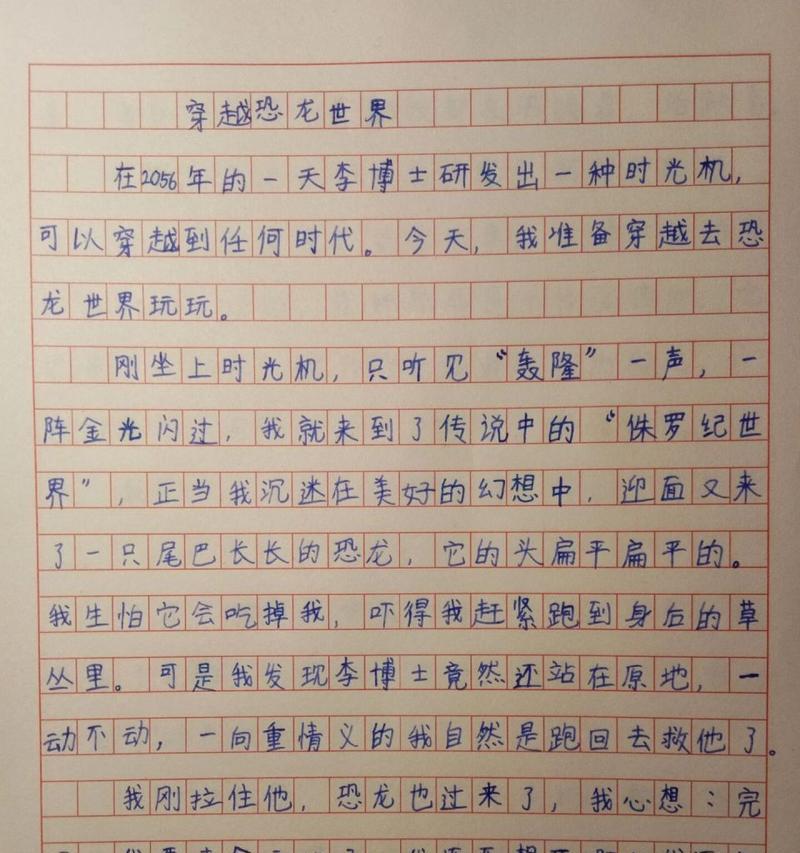 穿越恐龙世界
在2056年的一天李博士研发出一种时光机，
可以穿越到任何时代。今天，我准备穿越去恐
龙世界玩玩。
刚坐上时光机，只听见“轰隆”一声，一
阵金光闪过，我就来到了传说中的“侏罗纪世
界”，正当我沉迷在美好的幻想中，迎面又来
了一只尾巴长长的恐龙，它的头扁平扁平的。
我生怕它会吃掉我，吓得我赶紧跑到身后的草
丛里。可是我发现李博士竟然还站在原地，一
动不动，一向重情义的我自然是跑回去救他了。
我刚拉住他，恐龙也过来了，我心想：完